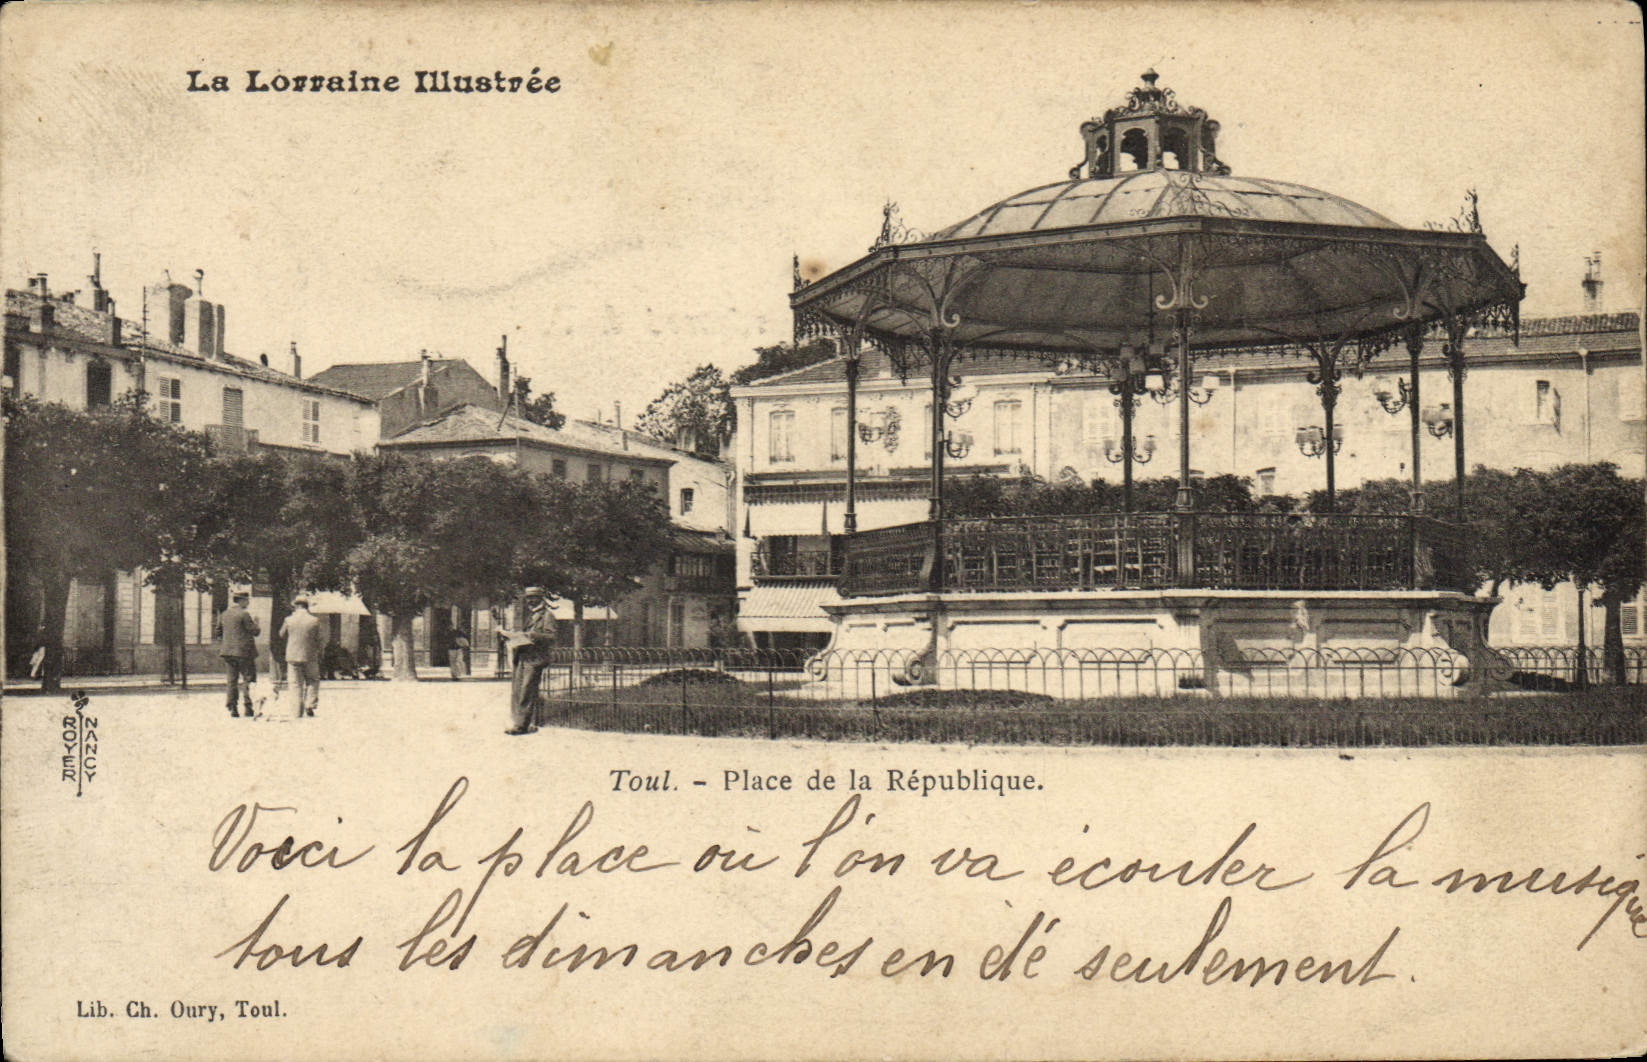 La Lorraine Illustrée
ROYER
NANCY
Toul. - Place de la République.
Voici la place où l'on va écouter la musique
tous les dimanches en été seulement.
Lib. Ch. Oury, Toul.